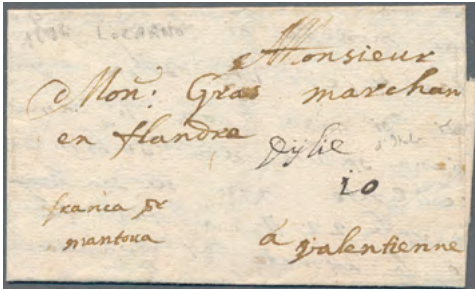 LOCARNO
Monsieur
Mon: Gras marchan
en flandre
dylie
10
franca pr
mantoua
a valentienne